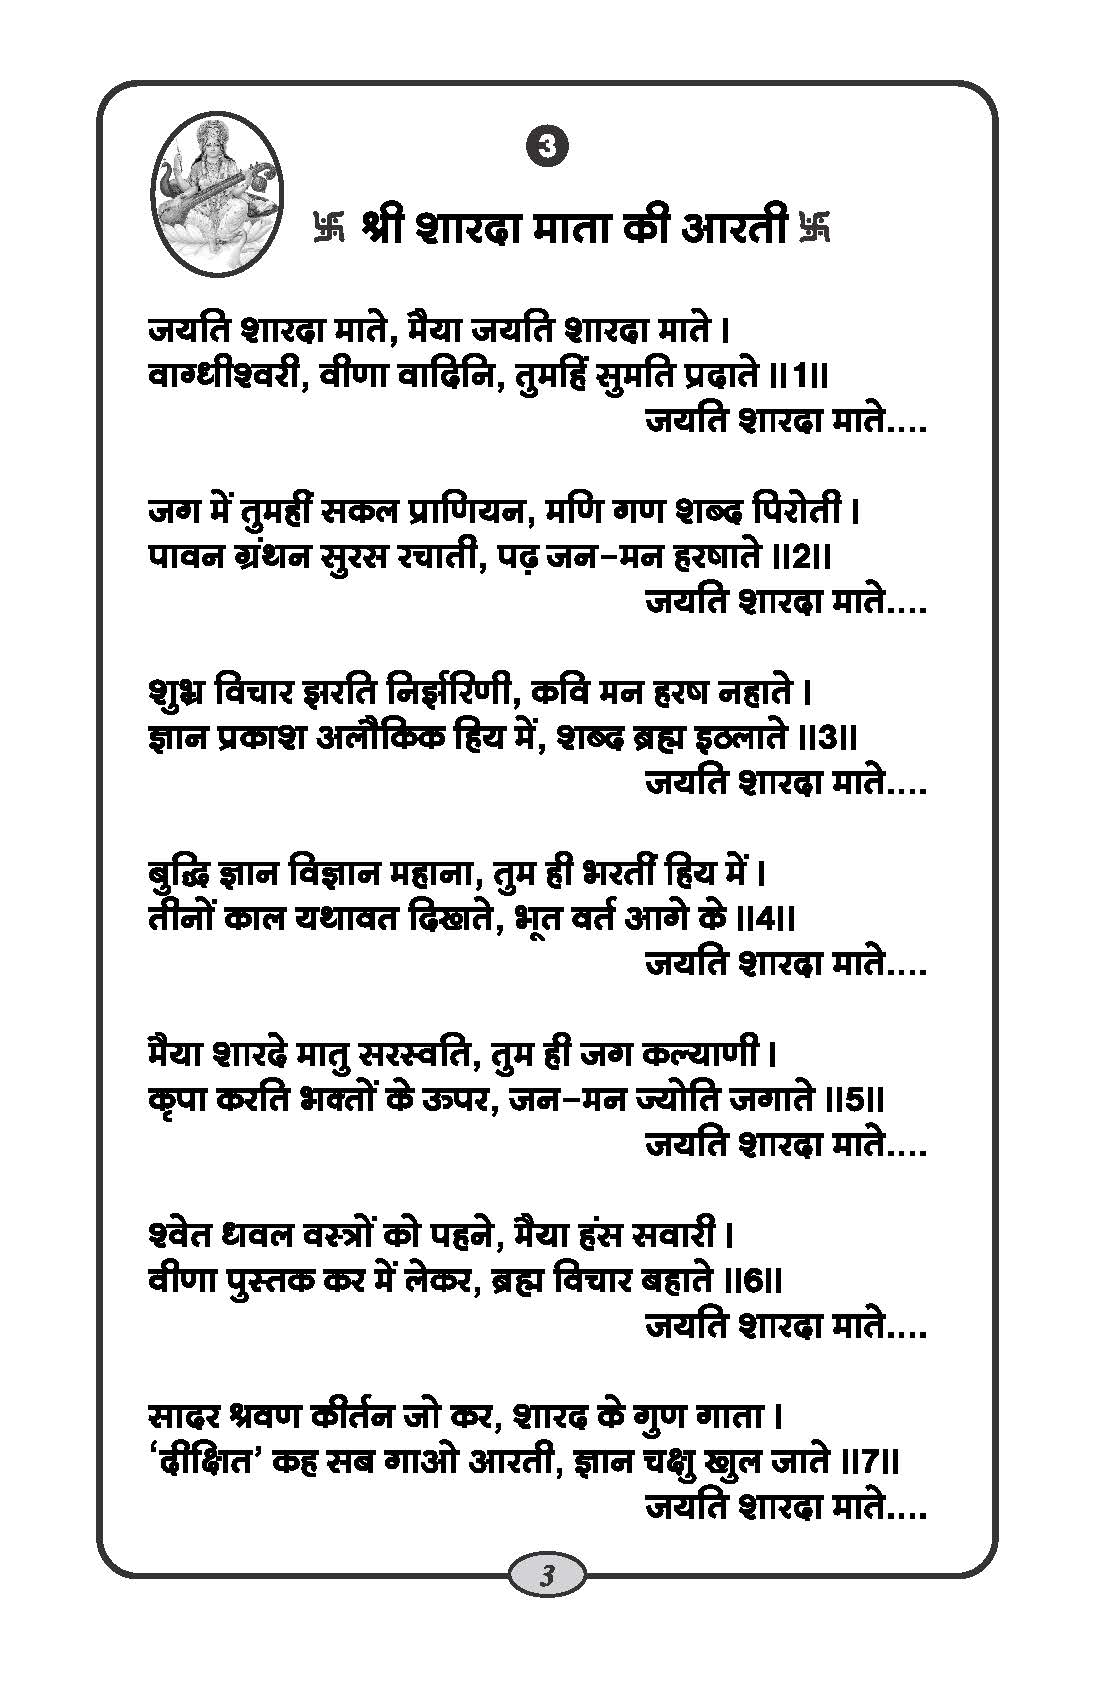 3
卐 श्री शारदा माता की आरती 卐
जयति शारदा माते, मैया जयति शारदा माते ।
वाग्धीश्वरी, वीणा वादिनि, तुमहिं सुमति प्रदाते ॥1॥
जयति शारदा माते....
जग में तुमहीं सकल प्राणियन, मणि गण शब्द पिरोती ।
पावन ग्रंथन सुरस रचाती, पढ़ जन-मन हरषाते ॥2॥
जयति शारदा माते....
शुभ्र विचार झरति निर्झरिणी, कवि मन हरष नहाते ।
ज्ञान प्रकाश अलौकिक हिय में, शब्द ब्रह्म इठलाते ॥3॥
जयति शारदा माते....
बुद्धि ज्ञान विज्ञान महाना, तुम ही भरतीं हिय में ।
तीनों काल यथावत दिखाते, भूत वर्त आगे के ॥4॥
जयति शारदा माते....
मैया शारदे मातु सरस्वति, तुम ही जग कल्याणी ।
कृपा करति भक्तों के ऊपर, जन-मन ज्योति जगाते ॥5॥
जयति शारदा माते....
श्वेत धवल वस्त्रों को पहने, मैया हंस सवारी ।
वीणा पुस्तक कर में लेकर, ब्रह्म विचार बहाते ॥6॥
जयति शारदा माते....
सादर श्रवण कीर्तन जो कर, शारद के गुण गाता ।
‘दीक्षित’ कह सब गाओ आरती, ज्ञान चक्षु खुल जाते ॥7॥
जयति शारदा माते....
3